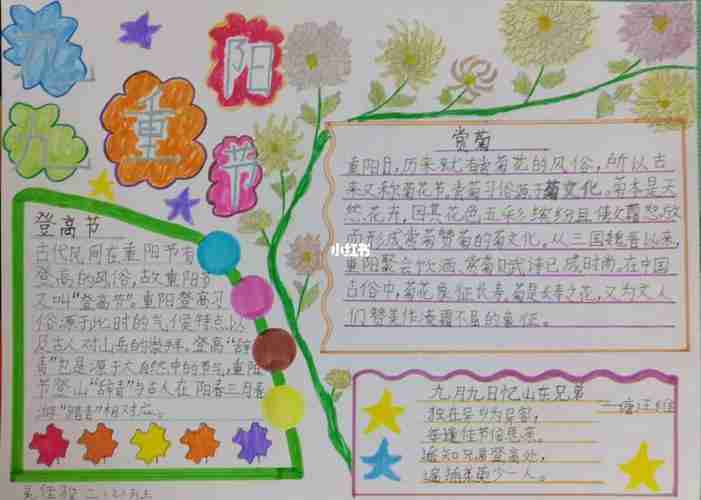 九
九
重
阳
节
登高节
古代民间在重阳节有
登高的风俗,故重阳节
又叫"登高节"。重阳登高习
俗源于此时的气侯特点以
及古人对山岳的崇拜。登高"辞
青"也是源于大自然中的节气,重阳
节登山"辞青"与古人在阳春三月春
游"踏青"相对应。
赏菊
重阳日,历来就有赏菊花的风俗,所以古
来又称菊花节赏菊习俗源于菊文化。菊本是天
然花卉,因其花色五彩缤纷且傲霜怒放
而形成赏菊赞菊的菊文化。从三国魏晋以来,
重阳聚会饮酒、赏菊赋诗已成时尚。在中国
古俗中,菊花象征长寿。菊是长寿之花,又为文人
们赞美作凌霜不屈的象征。
小红书
九月九日忆山东兄弟
—唐 王维
独在异乡为异客,
每逢佳节倍思亲。
遥知兄弟登高处,
遍插茱萸少一人。
二(2)